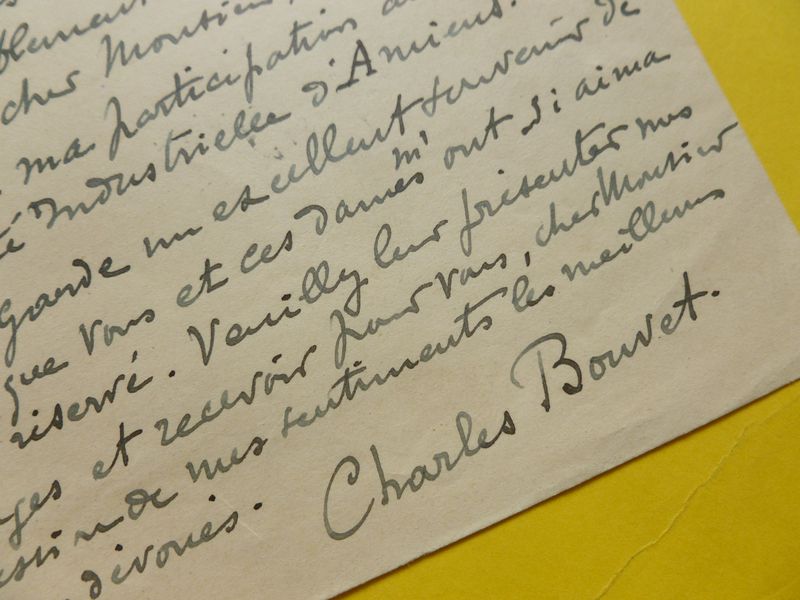 cher Monsieur,
ma participation
té Industrielle d'Amiens.
garde un excellent souvenir de
que vous et ces dames m'ont si aima
réservé. Veuillez leur présenter mes
ges et recevoir pour vous, cher Monsieur
ession de mes sentiments les meilleurs
dévoués.
Charles Bouvet.